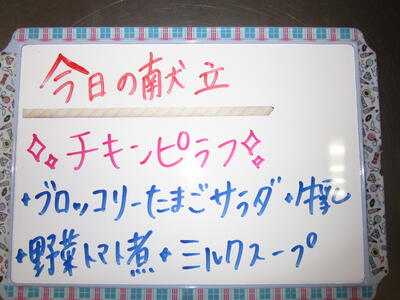 今日の献立
チキンピラフ
・ブロッコリーたまごサラダ・牛乳
・野菜トマト煮・ミルクスープ